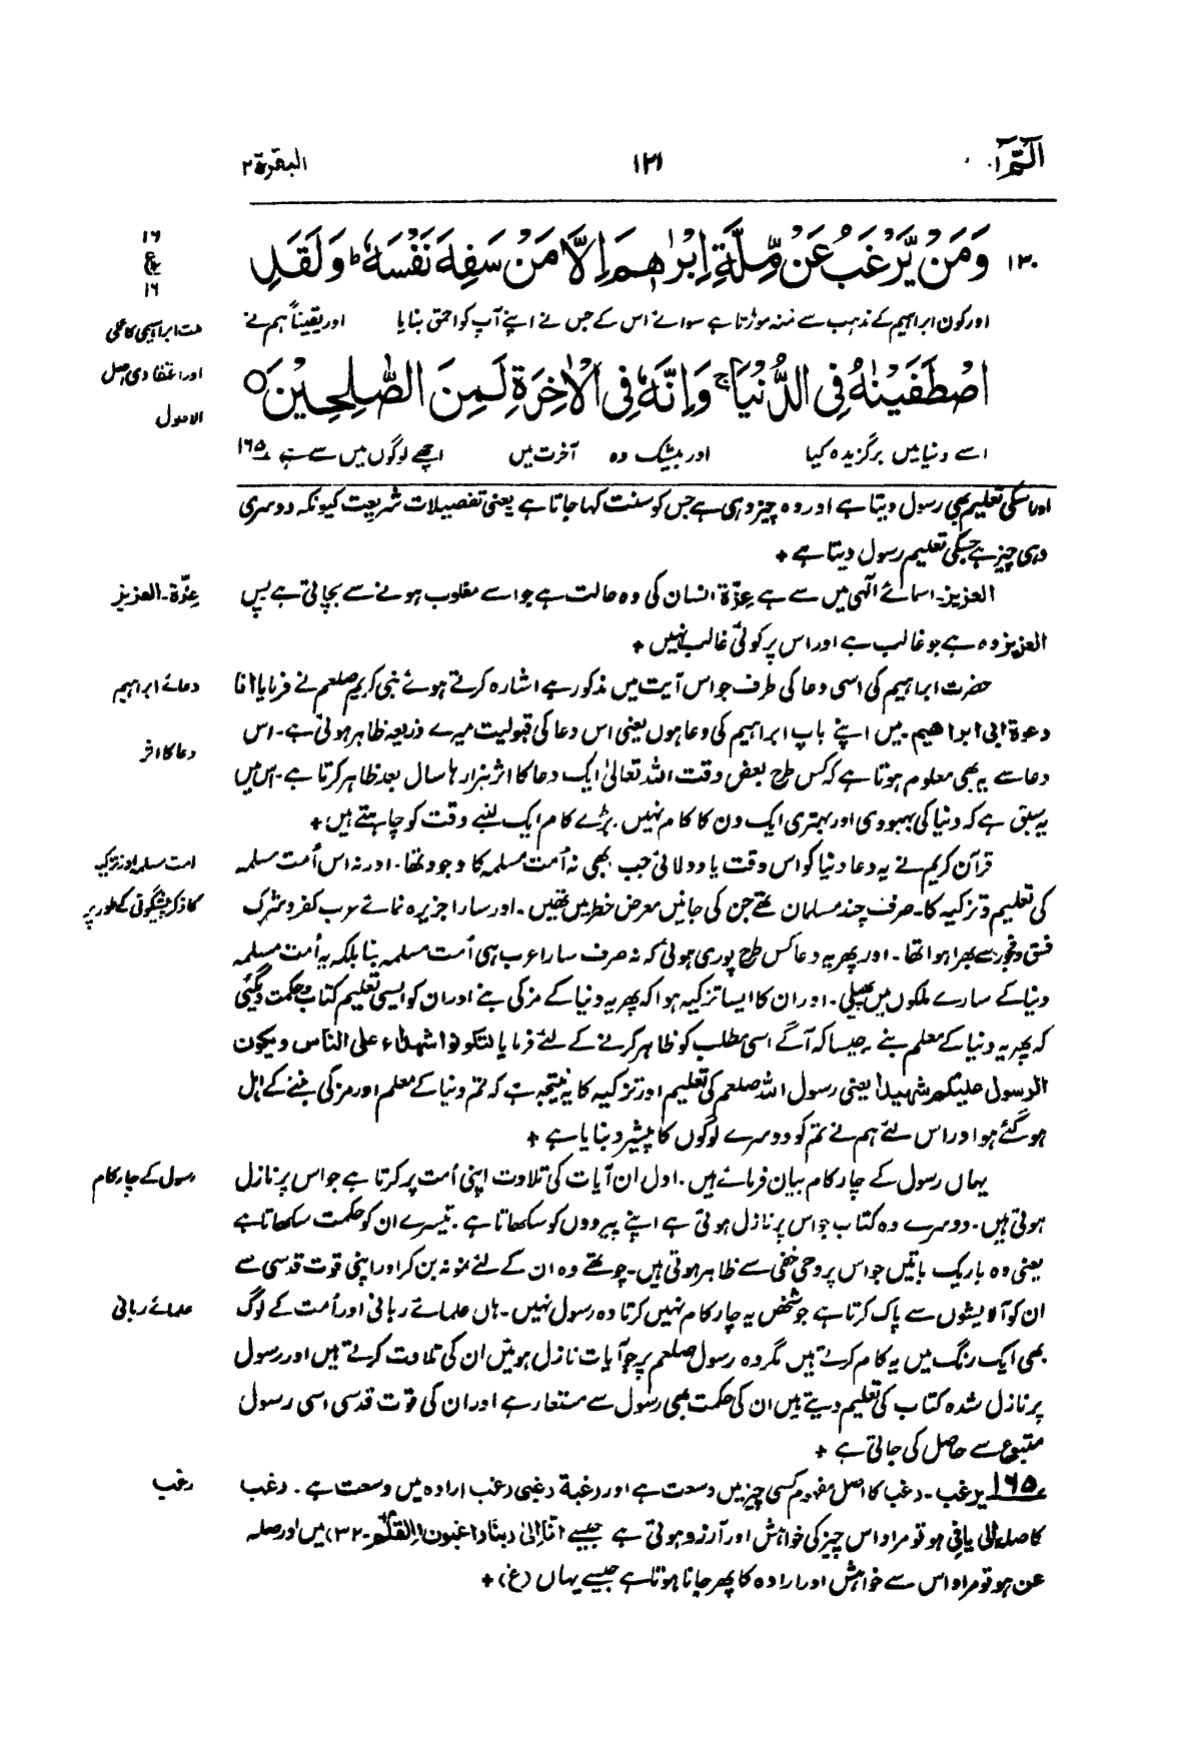 الٓمّٓ ۱
۱۲۱
البقرۃ ۲
۱۳۰ وَمَنْ يَّرْغَبُ عَنْ مِّلَّةِ اِبْرٰهٖمَ اِلَّا مَنْ سَفِهَ نَفْسَهٗ ؕ وَلَقَدِ
۱۶
ع
۱۶
اور کون ابراہیم کے مذہب سے منہ موڑتا ہے سوائے اس کے جس نے اپنے آپ کو احمق بنایا اور یقیناً ہم نے
ملت ابراہیمی کا عملی
اور اعتقادی اصل
الاصول
اصْطَفَيْنٰهُ فِى الدُّنْيَا ۚ وَاِنَّهٗ فِى الْاٰخِرَةِ لَمِنَ الصّٰلِحِيْنَ ○
اسے دنیا میں برگزیدہ کیا اور بیشک وہ آخرت میں اچھے لوگوں میں سے ہے ۱۶۵
اور اسکی تعلیم بھی رسول دیتا ہے اور وہ چیز وہی ہے جس کو سنت کہا جاتا ہے یعنی تفصیلات شریعت کیونکہ دوسری
وہی چیز ہے جسکی تعلیم رسول دیتا ہے +
العزیز۔ اسمائے الٰہی میں سے ہے عِزّۃ انسان کی وہ حالت ہے جو اسے مغلوب ہونے سے بچاتی ہے پس
عِزّۃ۔ العزیز
العزیز وہ ہے جو غالب ہے اور اس پر کوئی غالب نہیں +
حضرت ابراہیم کی اسی دعا کی طرف جو اس آیت میں مذکور ہے اشارہ کرتے ہوئے نبی کریم صلعم نے فرمایا انا
دعائے ابراہیم
دعوۃ ابی ابراھیم۔ میں اپنے باپ ابراہیم کی دعا ہوں یعنی اس دعا کی قبولیت میرے ذریعہ ظاہر ہوتی ہے۔ اس
دعا کا اثر
دعا سے یہ بھی معلوم ہوتا ہے کہ کس طرح بعض وقت اللہ تعالیٰ ایک دعا کا اثر ہزارہا سال بعد ظاہر کرتا ہے۔ اس میں
یہ سبق ہے کہ دنیا کی بہبودی اور بہتری ایک دن کا کام نہیں۔ بڑے کام ایک لنبے وقت کو چاہتے ہیں +
قرآن کریم نے یہ دعا دنیا کو اس وقت یاد دلائی جب بھی نہ اُمت مسلمہ کا وجود تھا۔ اور نہ اس اُمت مسلمہ
امت مسلمہ اور تزکیہ
کی تعلیم و تزکیہ کا۔ صرف چند مسلمان تھے جن کی جانیں معرض خطر میں تھیں۔ اور سارا جزیرہ نمائے عرب کفر و شرک
کا ذکر پیشگوئی کے طور پر
فسق و فجور سے بھرا ہوا تھا۔ اور پھر یہ دعا کس طرح پوری ہوئی کہ نہ صرف سارا عرب ہی اُمت مسلمہ بنا بلکہ یہ اُمت مسلمہ
دنیا کے سارے ملکوں میں پھیلی۔ اور ان کا ایسا تزکیہ ہوا کہ پھر یہ دنیا کے مزکی بنے اور ان کو ایسی تعلیم کتاب و حکمت دیگئی
کہ پھر یہ دنیا کے معلم بنے۔ جیسا کہ آگے اسی مطلب کو ظاہر کرنے کے لئے فرمایا لتکونوا شھداء علی الناس ویکون
الرسول علیکم شھیدا یعنی رسول اللہ صلعم کی تعلیم اور تزکیہ کا یہ نتیجہ ہے کہ تم دنیا کے معلم اور مزکی بننے کے اہل
ہو گئے ہو اور اس لئے ہم نے تم کو دوسرے لوگوں کا پیشرو بنایا ہے +
یہاں رسول کے چار کام بیان فرمائے ہیں۔ اول ان آیات کی تلاوت اپنی اُمت پر کرتا ہے جو اس پر نازل
رسول کے چار کام
ہوتی ہیں۔ دوسرے وہ کتاب جو اس پر نازل ہوتی ہے اپنے پیرووں کو سکھاتا ہے۔ تیسرے ان کو حکمت سکھاتا ہے
یعنی وہ باریک باتیں جو اس پر وحی خفی سے ظاہر ہوتی ہیں۔ چوتھے وہ ان کے لئے نمونہ بن کر اور اپنی قوت قدسی سے
ان کو آلائشوں سے پاک کرتا ہے جو شخص یہ چار کام نہیں کرتا وہ رسول نہیں۔ ہاں علمائے ربانی اور اُمت کے لوگ
علمائے ربانی
بھی ایک رنگ میں یہ کام کرتے ہیں مگر وہ رسول صلعم پر جو آیات نازل ہوئیں ان کی تلاوت کرتے ہیں اور رسول
پر نازل شدہ کتاب کی تعلیم دیتے ہیں ان کی حکمت بھی رسول سے مستعار ہے اور ان کی قوت قدسی اسی رسول
متبوع سے حاصل کی جاتی ہے +
۱۶۵ یرغب۔ رغب کا اصل مفہوم کسی چیز میں وسعت ہے اور رغبۃ رغبی رغب ارادہ میں وسعت ہے۔ رغب
رغب
کا صلہ الی یا فی ہو تو مراد اس چیز کی خواہش اور آرزو ہوتی ہے جیسے انا الی ربنا راغبون (القلم۔ ۳۲) میں اور صلہ
عن ہو تو مراد اس سے خواہش اور ارادہ کا پھر جانا ہوتا ہے جیسے یہاں (غ) +